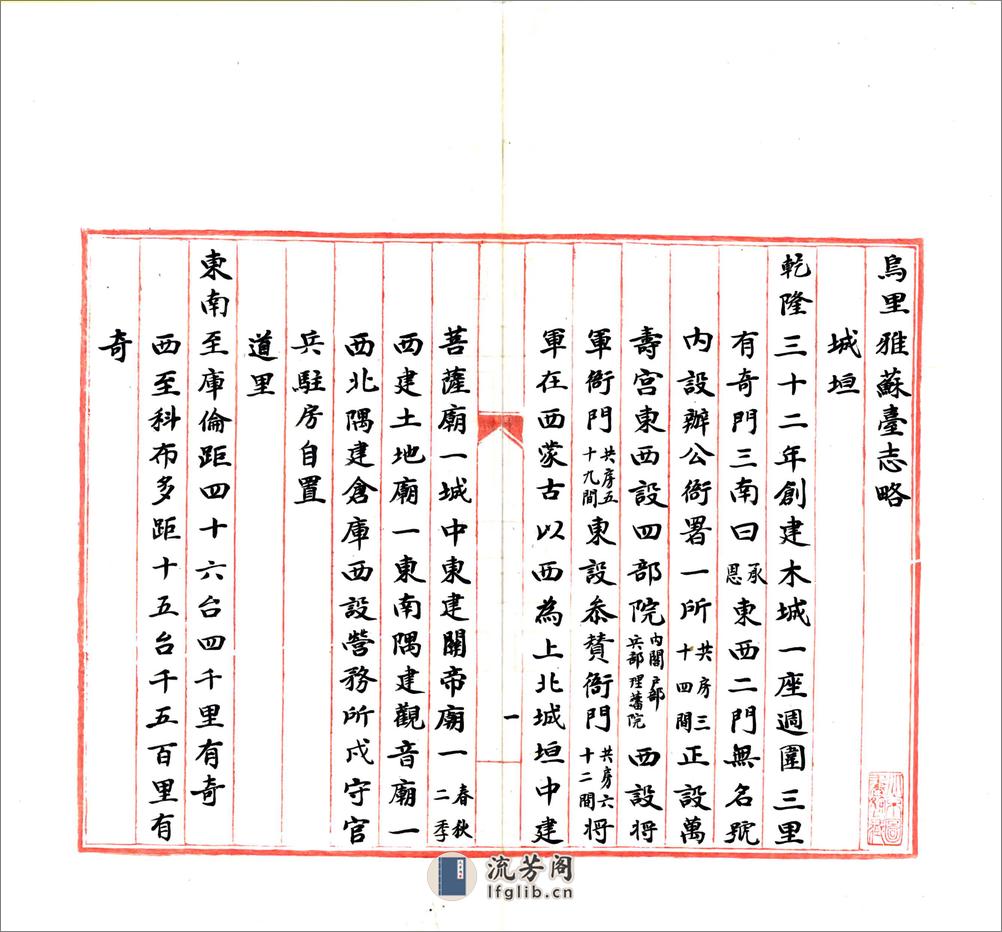 烏里雅蘇臺志略
城垣
乾隆三十二年創建木城一座週圍三里
有奇門三南曰承恩東西二門無名號
内設辦公衙署一所共房三十四間正設萬
壽宮東西設四部院内閣戶部兵部理藩院西設將
軍衙門共房五十九間東設叅贊衙門共房六十二間將
軍在西蒙古以西為上北城垣中建
一
菩薩廟一城中東建關帝廟一春秋二季
西建土地廟一東南隅建觀音廟一
西北隅建倉庫西設營務所戍守官
兵駐房自置
道里
東南至庫倫距四十六台四千里有奇
西至科布多距十五台千五百里有
奇
流芳阁
lfglib.cn